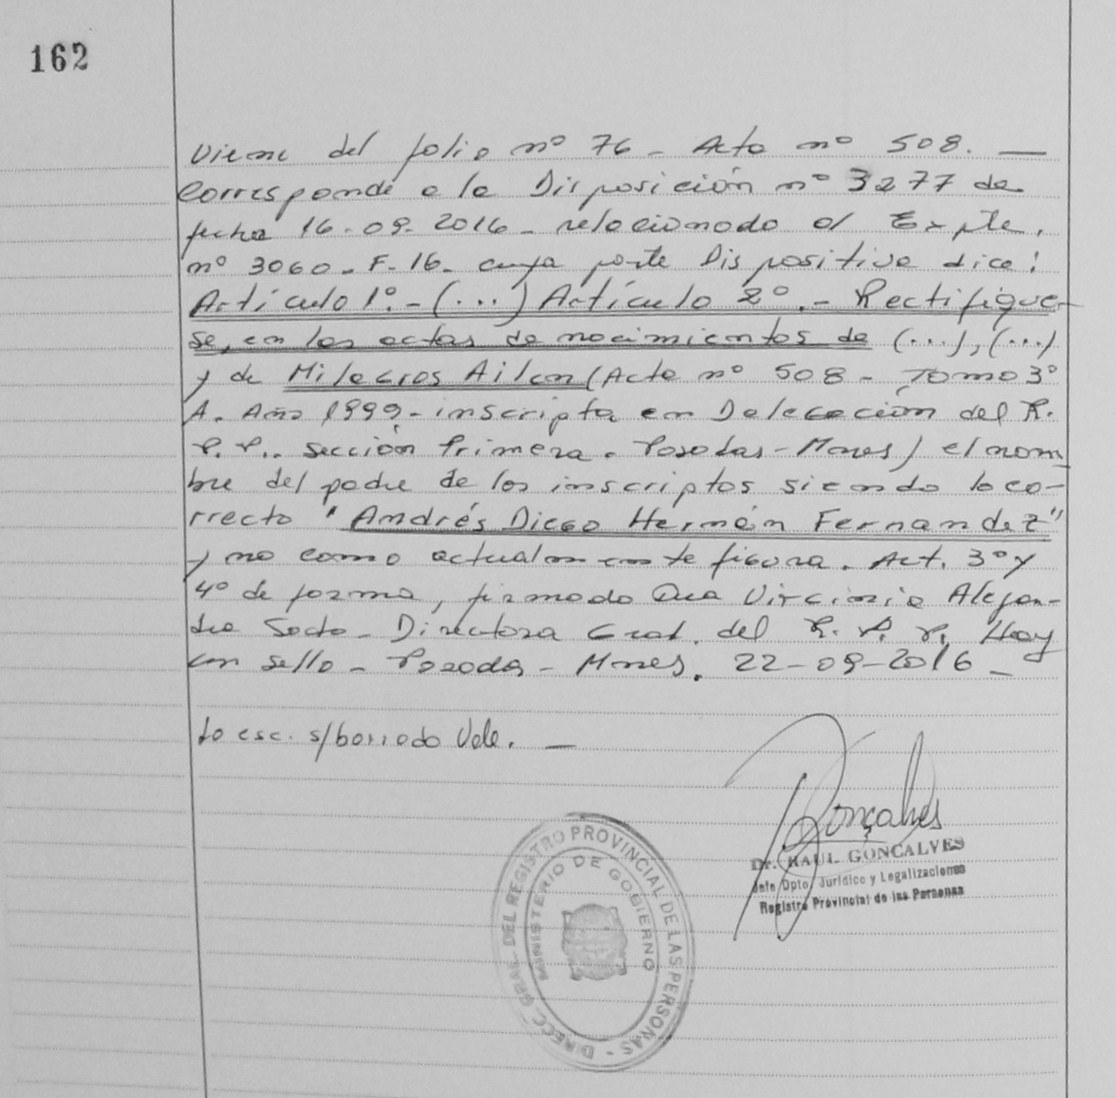 162
Viene del folio nº 76 - Acta nº 508. —
Corresponde a la Disposición nº 3277 de
fecha 16-09-2016 - relacionado al Expte.
nº 3060-F-16- cuya parte Dispositiva dice:
Artículo 1º.- (...) Artículo 2º.- Rectifique-
se, en las actas de nacimientos de (...), (...)
y de Milagros Ailen (Acta nº 508 - Tomo 3º
A. Año 1999 - inscripta en Delegación del R.
P. P.. Sección Primera. Posadas - Mnes) el nom
bre del padre de los inscriptos siendo lo co-
rrecto "Andrés Diego Hernán Fernandez"
y no como actualmente figura. Art. 3º y
4º de forma, firmado Dra Virginia Alejan-
dra Directora Gral. del R. P. P. Hay
un sello - Posadas - Mnes. 22-09-2016 -
Lo esc. s/borrado Vale. —
Gonçalves
Dr. RAUL GONCALVES
Jefe Dpto. Jurídico y Legalizaciones
Registro Provincial de las Personas
DIRECC. GRAL. DEL REGISTRO PROVINCIAL DE LAS PERSONAS -
MINISTERIO DE GOBIERNO